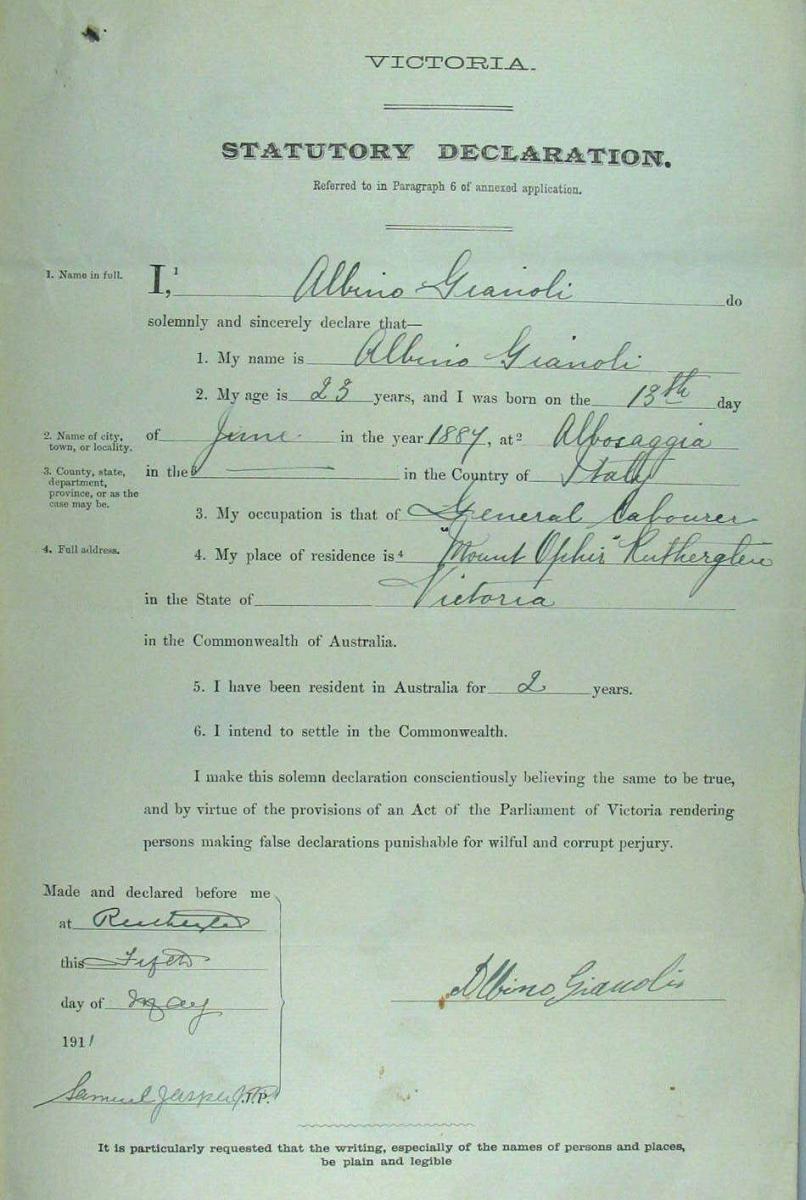 VICTORIA.
STATUTORY DECLARATION.
Referred to in Paragraph 6 of annexed application.
1. Name in full. I,¹ Albino Gianoli do
solemnly and sincerely declare that—
1. My name is Albino Gianoli
2. My age is 23 years, and I was born on the 13th day
2. Name of city, town, or locality. of June in the year 1887, at ² Albosaggia
3. County, state, department, province, or as the case may be. in the ³ — in the Country of Italy
3. My occupation is that of General Labourer
4. Full address. 4. My place of residence is ⁴ "Mount Ophir" Rutherglen
in the State of Victoria
in the Commonwealth of Australia.
5. I have been resident in Australia for 2 years.
6. I intend to settle in the Commonwealth.
I make this solemn declaration conscientiously believing the same to be true,
and by virtue of the provisions of an Act of the Parliament of Victoria rendering
persons making false declarations punishable for wilful and corrupt perjury.
Made and declared before me
at Rutherglen
this Fifth
day of May
1911
Albino Gianoli
Samuel Jasper J.P.
It is particularly requested that the writing, especially of the names of persons and places,
be plain and legible